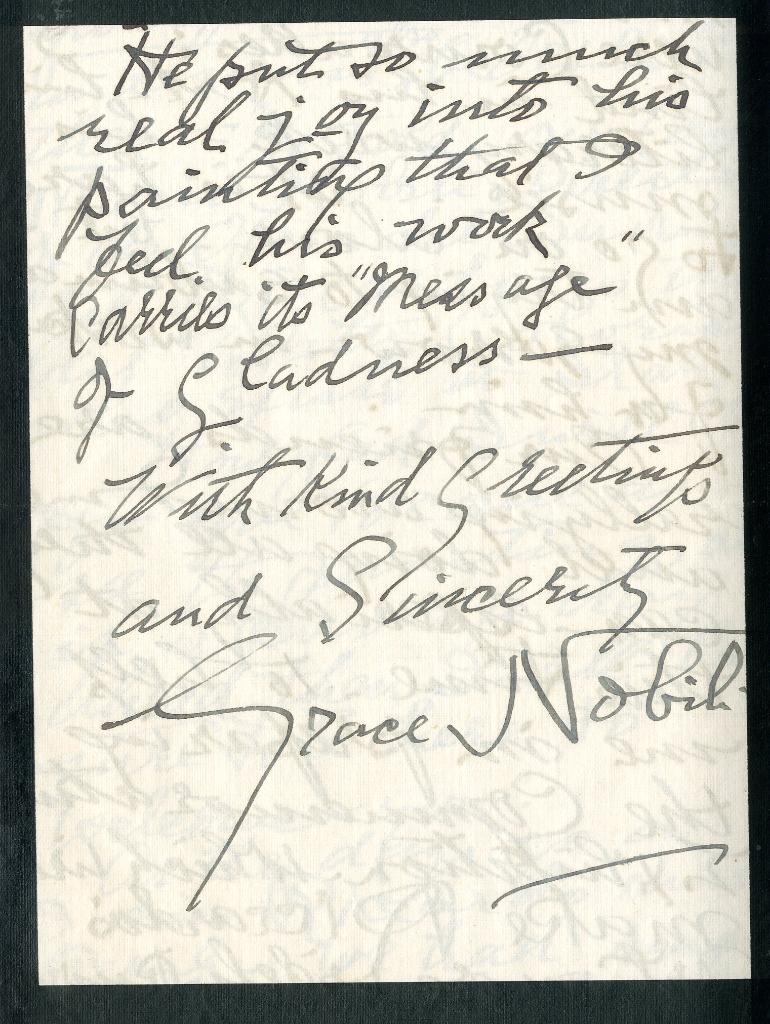 He put so much
real joy into his
painting that I
feel his work
Carries its "Message"
of Gladness —
With Kind Greetings
and Sincerity
Grace Nobili